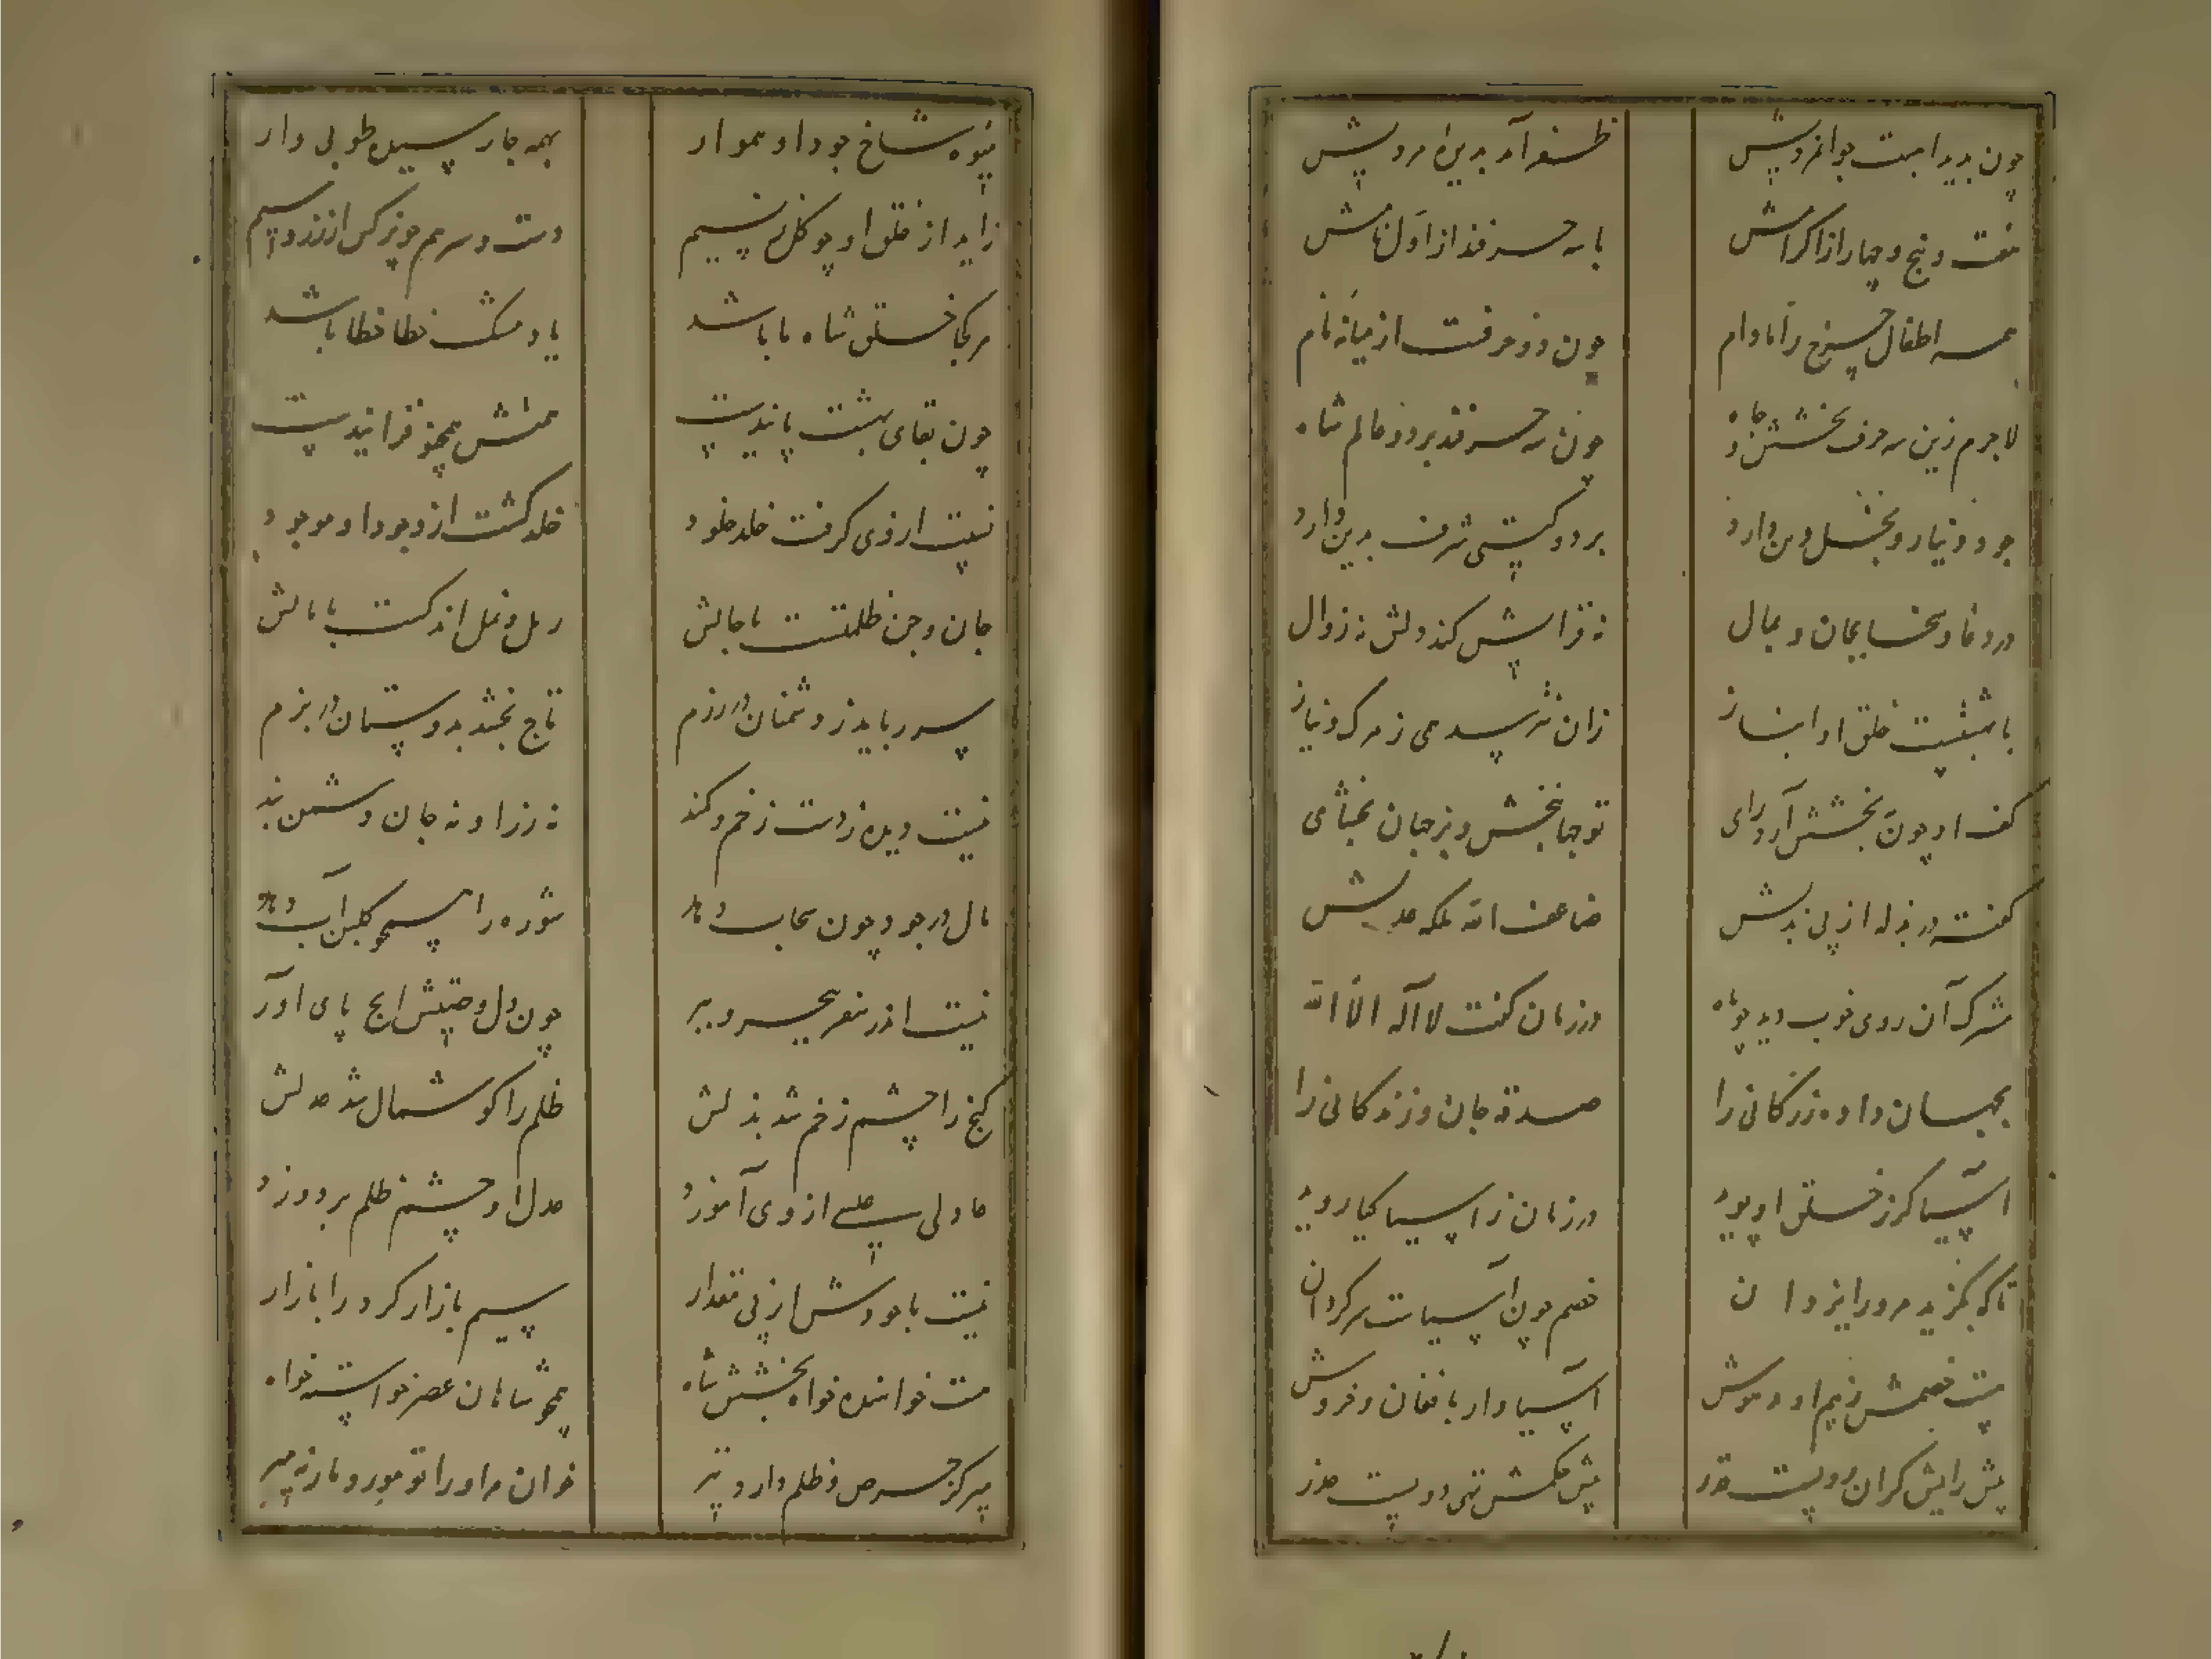 چون بدید است جوانمردیش ظفر آمد بدین مردیش
هفت و پنج و چهار از اکرامش با سه حرفند از اول نامش
همه اطفال چرخ را مادام چون دو حرفت از میانه نام
لاجرم زین سه حرف بخشش و جاه چون سه حرفند بر در عالم شاه
جود دنیا و بخل دین دارد بر دو گیتی شرف بدین دارد
در وفا و سخا بجان و بمال نه قرایش کند دلش نه زوال
با خلق او انباز زان نترسد همی ز مرگ و نیاز
کف او چون بخشش آرد رای تو جهانبخش و بر جهان بخشای
گفت در بذله از پی بذلش ضاعف الله ملکه عدلش
مشرک آن روی خوب دید چو ماه در زمان گفت لا اله الا الله
بجهان داده زر کانی را صدقه جان و زندگانی را
آسیا گر ز خلق او پوید در زمان ز آسیا گیا روید
تا که بگزید مرورا یزدان خصم چون آسیاست سرگردان
هست خصمش ز بیم او مدهوش آسیاوار با فغان و خروش
پیش رایش گران رو پست قدر پیش حکمش تهی دو پست
میوه شاخ جود او هموار بهمه جا رسیده طوبی وار
زاید از خلق او چو گل ز نسیم دست و سر هم چو نرگس از زر و سیم
هر کجا خلق شاه ما باشد یاد مشک خطا خطا باشد
چون بقای بهشت پایندست همتش همچو فزایندست
نسبت از وی گرفت خلد خلود خلد گشت از وجود او موجود
جان و جن ظلمتست با جانش رمل و نمل اندکست با مالش
سر رباید ز دشمنان در رزم تاج بخشد بدوستان در بزم
نیست دیده ز دست زخم و کمند نه زر او نه جان دشمن بند
مال در جود چون سحاب دهد شوره را همچو گلبن آب دهد
نیست اندر سفر ببحر و ببر چون دل و ایچ پای آور
گنج را چشم زخم شد بذلش ظلم را گوشمال شد عدلش
عادلی سیلی از وی آموزد عدل او چشم ظلم بردوزد
نیست با جودش از پی مقدار سیم بازار گرد را بازار
هست خواننده خواه بخشش شاه همچو شاهان عصر خواسته خواه
میر کز حرص و ظلم دارد تیر خوان مر او را تو مور و مار نه میر